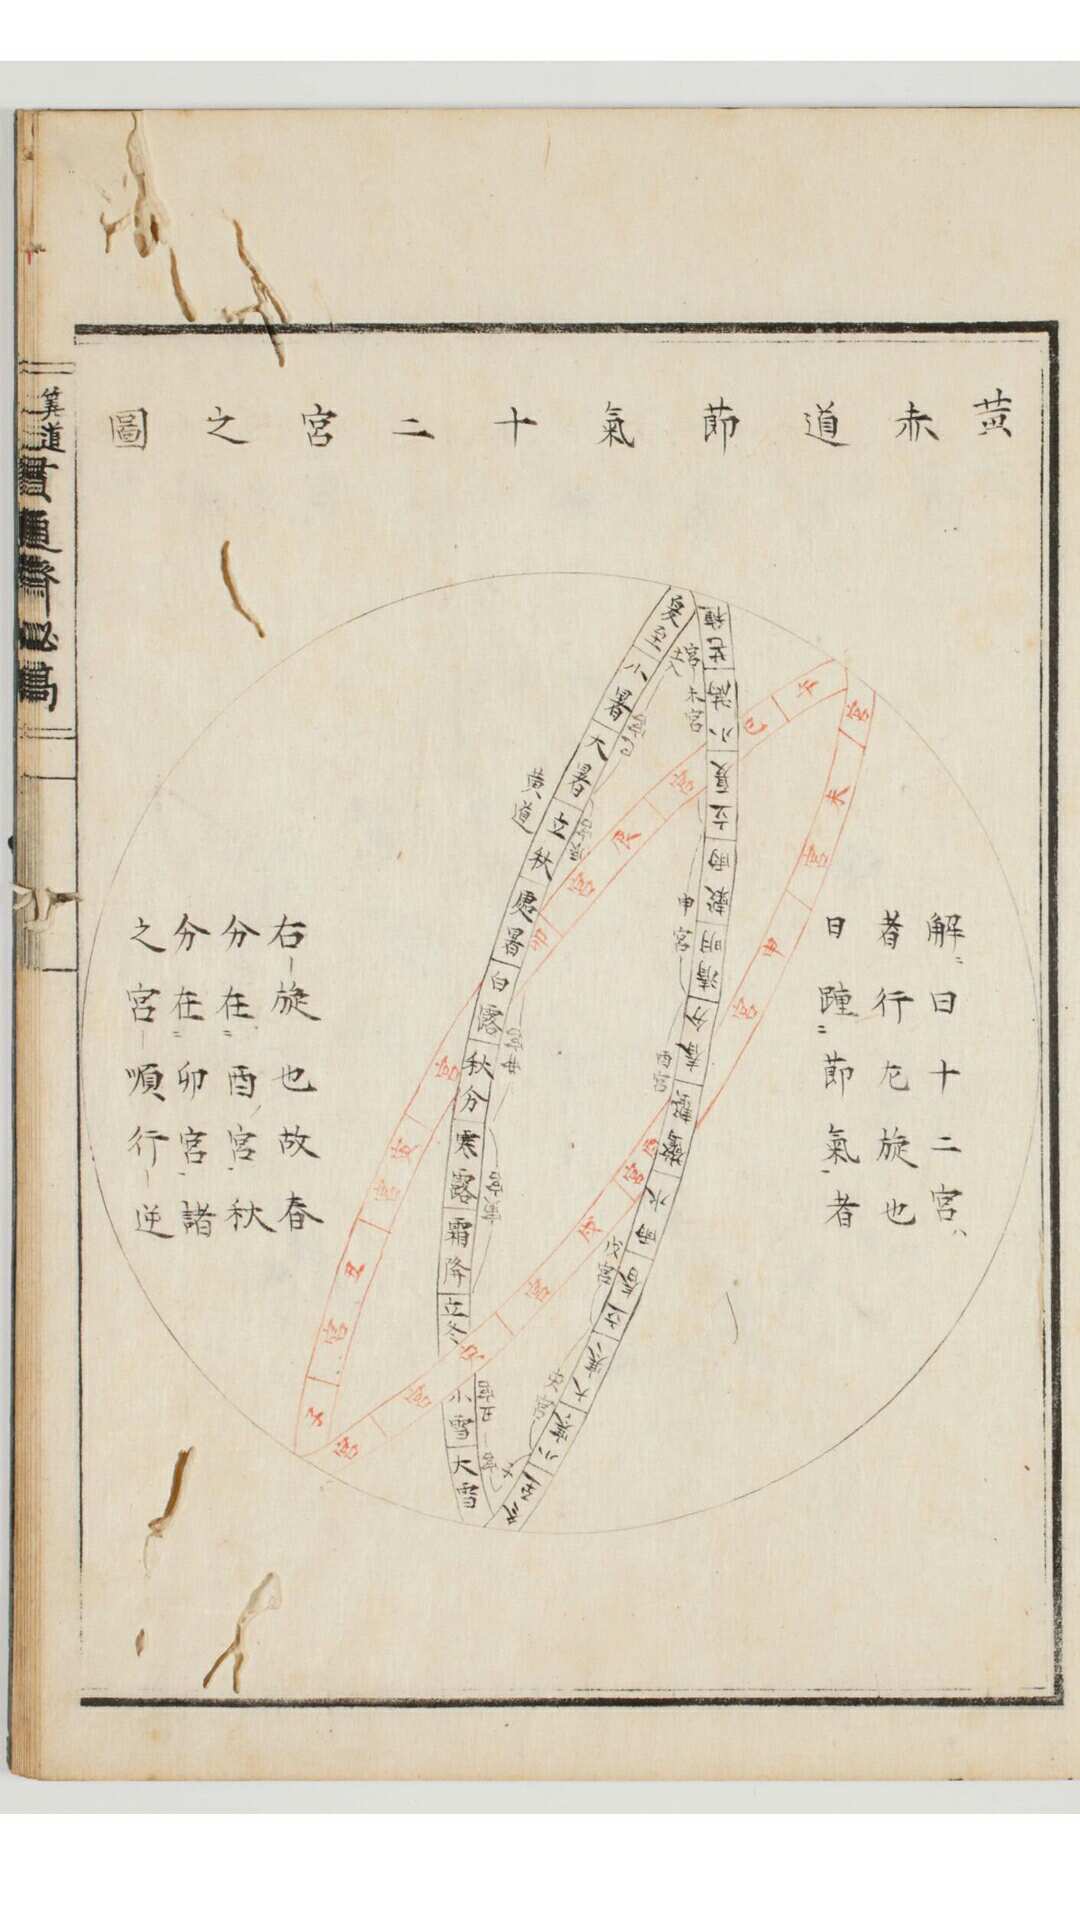 黄赤道節氣十二宮之圖
解曰十二宮
者行左旋也
日躔節氣者
右旋也故春
分在酉宮秋
分在卯宮諸
之宮順行逆
黄道
夏至
小暑
大暑
立秋
處暑
白露
秋分
寒露
霜降
立冬
小雪
大雪
冬至
小寒
大寒
立春
雨水
驚蟄
春分
清明
穀雨
立夏
小滿
芒種
午宮
未宮
申宮
子宮
丑宮
寅宮
卯宮
辰宮
巳宮
申宮
酉宮
戌宮
亥宮
未宮
寅宮
丑宮
算道
貫通齊秘稿